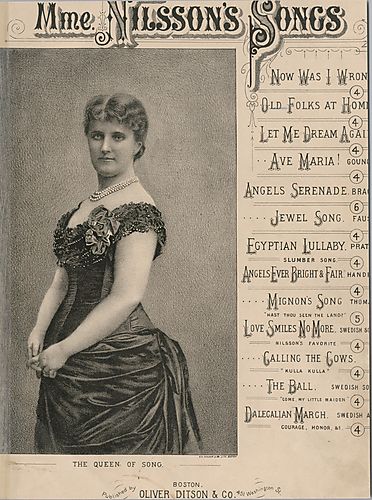 Mme. NILSSON'S SONGS
NOW WAS I WRON
4
OLD FOLKS AT HOM
4
LET ME DREAM AGAI
4
AVE MARIA! GOUN
4
ANGELS SERENADE. BRA
6
JEWEL SONG. FAU
4
EGYPTIAN LULLABY. PRAT
SLUMBER SONG. 4
ANGELS EVER BRIGHT & FAIR HAND
4
MIGNON'S SONG THOM
"HAST THOU SEEN THE LAND?" 5
LOVE SMILES NO MORE. SWEDISH S
NILSSON'S FAVORITE 4
CALLING THE COWS.
"KULLA KULLA" 4
THE BALL. SWEDISH SO
"COME, MY LITTLE MAIDEN" 4
DALECALIAN MARCH. SWEDISH A
COURAGE, HONOR, &. 4
THE QUEEN OF SONG.
BOSTON.
Published by OLIVER DITSON & CO. 451 Washington St.